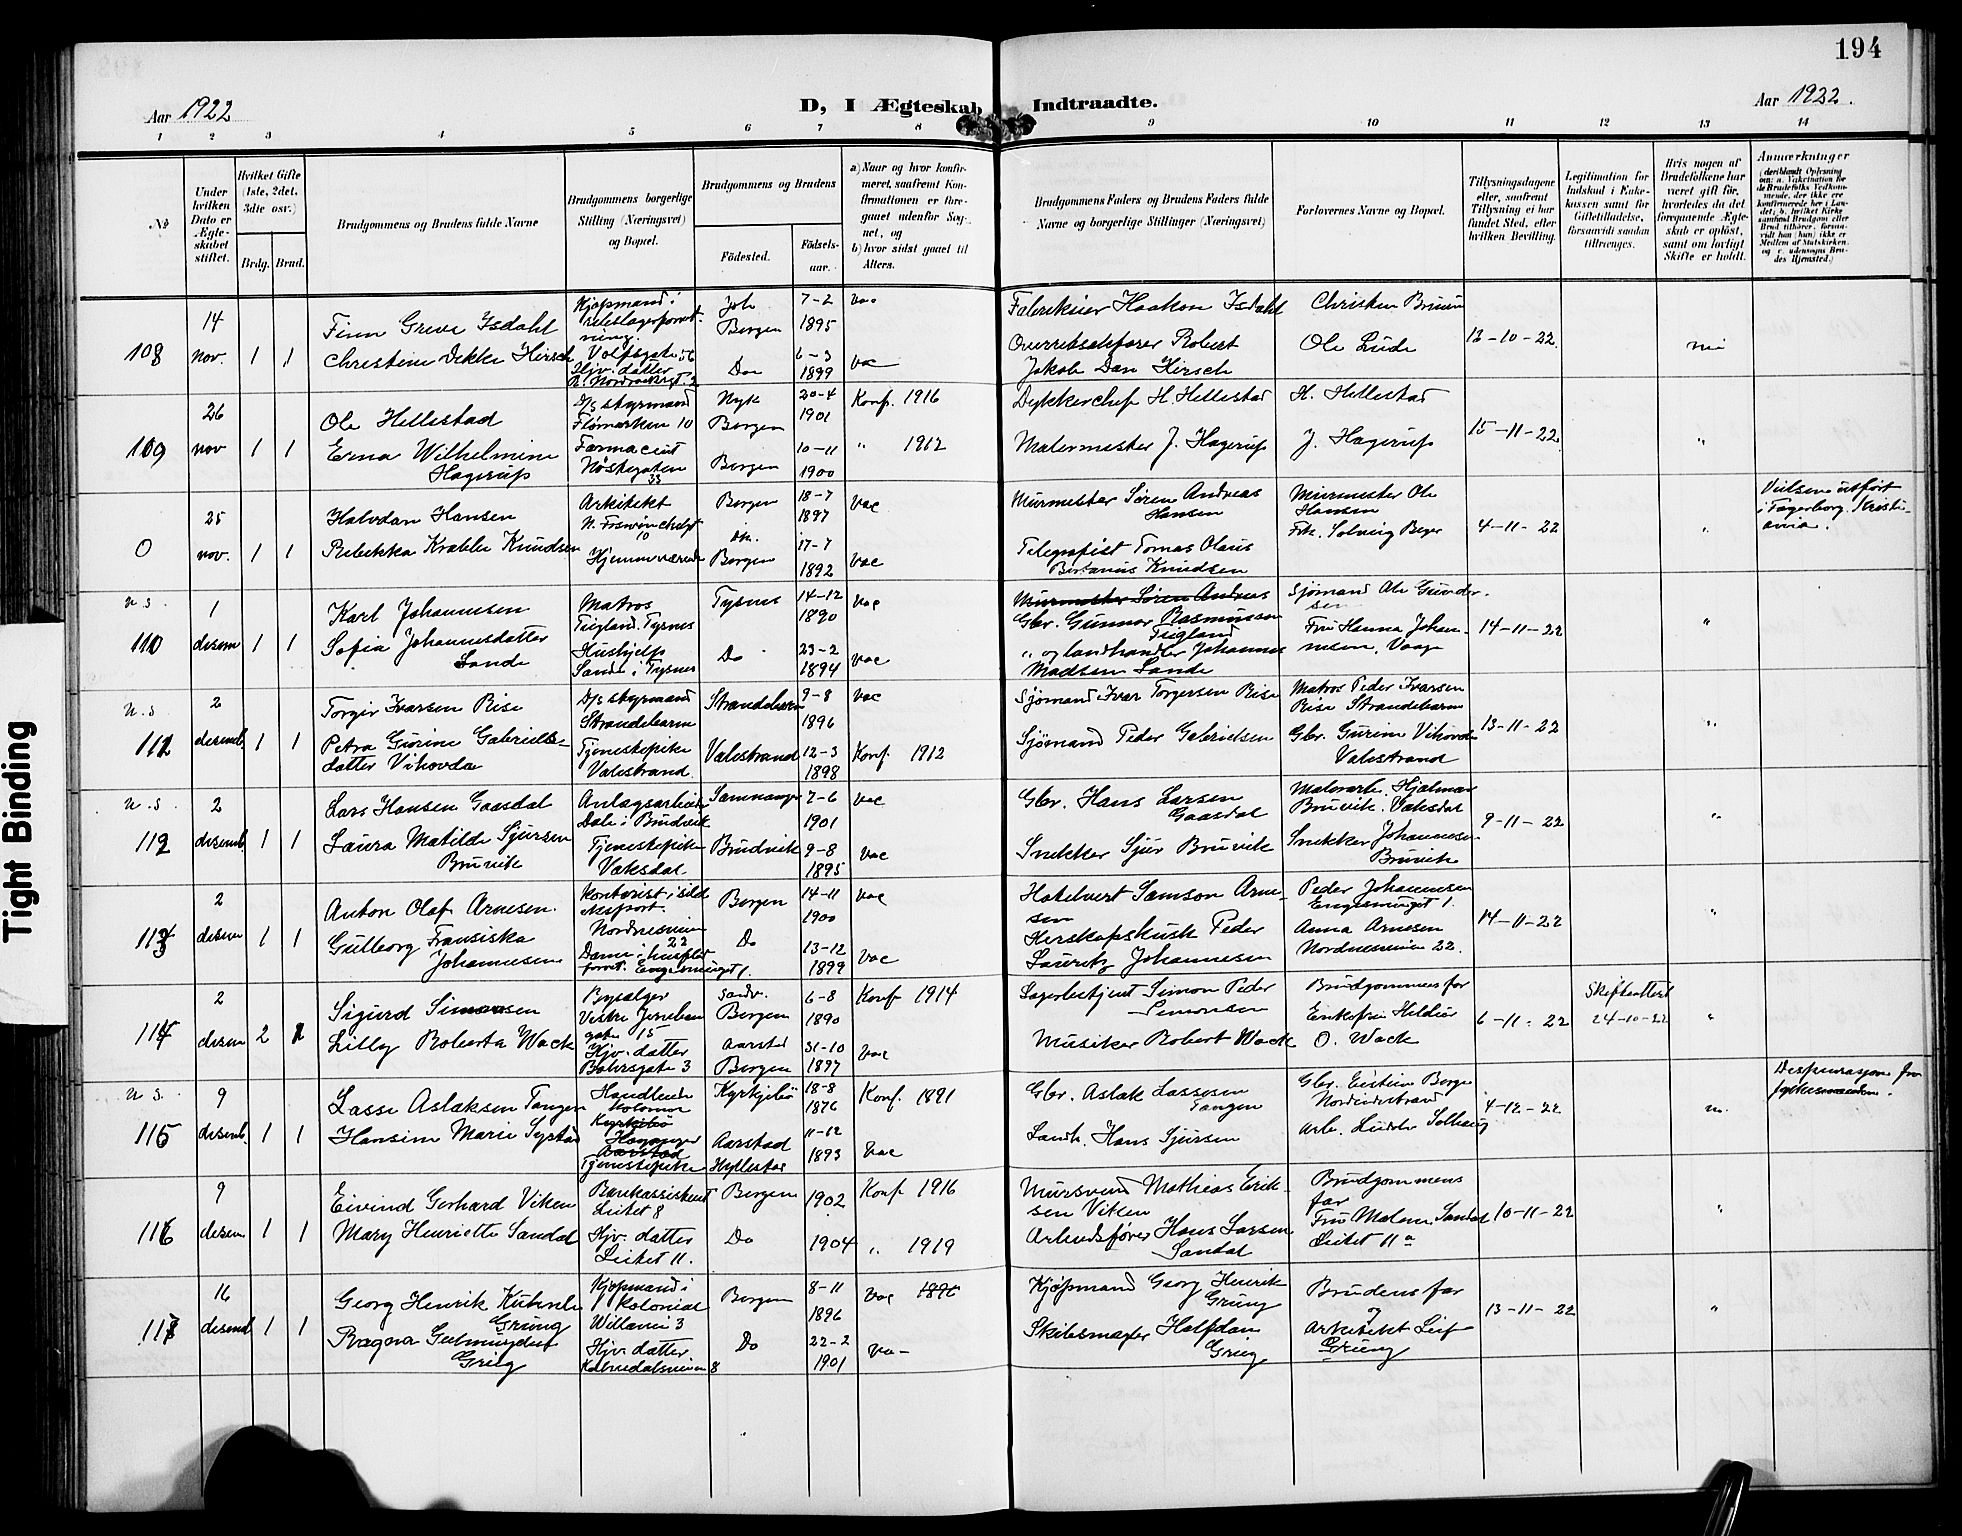 194
Aar 1922
D, I Ægteskab Indtraadte.
Aar 1922.
1 2 3 4 5 6 7 8 9 10 11 12 13 14
№
Under hvilken Dato er Ægteskabet stiftet.
Hvilket Gifte (1ste, 2det, 3die osv.)
Brdg. Brud.
Brudgommens og Brudens fulde Navne
Brudgommens borgerlige Stilling (Næringsvei) og Bopæl.
Brudgommens og Brudens
Fødested.
Fødselsaar.
a) Naar og hvor konfirmeret, saafremt Konfirmationen er foregaaet udenfor Sognet, og
b) hvor sidst gaaet til Alters.
Brudgommens Faders og Brudens Faders fulde Navne og borgerlige Stillinger (Næringsvei)
Forlovernes Navne og Bopæl.
Tillysningsdagene eller, saafremt Tillysning ei har fundet Sted, efter hvilken Bevilling.
Legitimation for Indskud i Enkekassen samt for Giftetilladelse, forsaavidt saadan tiltrænges.
Hvis nogen af Brudefolkene har været gift før, hvorledes da det foregaaende Ægteskab er opløst, samt om lovligt Skifte er holdt.
Anmærkninger
(deriblandt Oplysning om: a. Vakcination for de Brudefolks Vedkommende, der ikke ere konfirmerede her i Landet; b. hvilket Kirkesamfund Brudgom eller Brud tilhører, forsaavidt han (hun) ikke er Medlem af Statskirken, og c. udensogns Brudes Hjemsted.)
108 14 nov. 1 1
Finn Greve Isdahl
Christine Dekke Hirsch
Kjøpmand i
Hjv. datter
Joh
Bergen
Do
7-2 1895
6-3 1899
vac
vac
Fabrikeier Haakon Isdahl
Overretssakfører Robert
Jakob Dan Hirsch
Christen Bruun
Ole Lude
12-10-22.
nei
109 26 nov 1 1
Ole Hellestad
Erna Wilhelmine
Hagerup
D/s styrmand
Flørnarken 10
Farmaceut
Nøstegaten
33
Nyk
Bergen
Bergen
20-4 1901
10-11 1900
Konf. 1916
" 1912
Dykkerchef H. Hellestad
Malermester J. Hagerup
H. Hellestad
J. Hagerup
15-11-22
"
0 25 nov. 1 1
Halvdan Hansen
Rebekka Krabbe Knudsen
Arkitekt
10
Hjemmeværende
Bergen
Bergen
18-7 1897
17-7 1892
vac
vac
Murmester Søren Andreas
Hansen
Telegrafist Tomas Olaus
Bertanius Knudsen
Murmester Ole
Hansen
Frk. Solveig Beyer
4-11-22
"
Vielsen utført
i Fagerborg. Kristiania.
u. s. 110 1 desem 1 1
Karl Johannesen
Sofia Johannesdatter
Lande
Matros
Teigland. Tysnes
Hushjelp
Sande i Tysnes
Tysnes
Do
14-12 1890
23-2 1894
vac
vac
Murmester Søren Andreas
Gbr. Gunnar Rasmussen
Teigland
" og landhandler Johannes
Madsen Lande
Sjømand Ole Gundersen
Fru Hanna Johannesen, Vaage
14-11-22
"
u. s 111 2 desemb. 1 1
Torgir Ivarsen Rise
Petra Gurine Gabriels-
datter Vihovda
D/s styrmand
Strandebarm
Tjenestepike
Valestrand
Strandebarm
Valestrand
9-8 1896
12-3 1898
vac
Konf. 1912
Sjømand Ivar Torgersen Rise
Sjømand Peder Gabrielsen
Matros Peder Ivarsen
Rise Strandebarm
Gbr. Gurine Vihovda
Valestrand
13-11-22
"
u. s 112 2 desemb. 1 1
Lars Hansen Gaasdal
Laura Matilde Sjursen
Bruvik
Anlagsarbeider
Dale i Bruvik
Tjenestepike
Vaksdal
Samnanger
Brudvik
7-6 1901
9-8 1895
vac
vac
Gbr. Hans Larsen
Gaasdal
Snekker Sjur Bruvik
Malerarb. Hjalmar
Bruvik. Vaksdal
Snekker Johannesen
Bruvik
9-11-22
"
113 2 desem 1 1
Anton Olaf Arnesen.
Gulborg Fransiska
Johannesen
Kontorist i sild
eksport.
Nordnesveien
22
Engesmuget 1.
Bergen
Do
14-11 1900
13-12 1899
vac
vac
Hotelvert Samson Arne-
sen
Herskapskusk Peder
Lauritz Johannesen
Peder Johannesen
Engesmuget 1.
Anna Arnesen
Nordnesveien 22.
14-11-22
"
114 2 desem 2 1
Sigurd Simonsen
Lilly Roberta Wack
Bysælger
Vestre Jerneban
gate 15
Hjv. datter
Bohrsgate 3
Sandv.
Bergen
Aarstad
Bergen
6-8 1890
31-10 1897
Konf 1914
vac
Lagerbetjent Simon Peder
Simonsen
Musiker Robert Wack
Brudgommens far
Enkefru Hildur
O. Wack
6-11-22
Skifteattest
24-10-22
"
u. s. 115 9 desemb. 1 1
Lasse Aslaksen Tangen
Hansine Marie Systad
Handlende
kolonial
Kyrkjebø
Høyanger
Aarstad
Tjenestepike
Kyrkjebø
Aarstad
Hyllestad
18-8 1876
11-12 1893
Konf. 1891
vac
Gbr. Aslak Lassesen
Tangen
Landh. Hans Sjursen
Gbr. Eistein Berge
Nordeidestrand
Arb. Ludde Solhaug
4-12-22
nei.
Dispensasjon fra
fylkesmanden.
116 9 desem 1 1
Eivind Gerhard Viken
Mary Henriette Sandal
Bankassistent
Leitet 8
Hjv. datter
Leitet 11.
Bergen
Do
1902
1904
Konf 1916
" 1919
Mursvend Mathias Erik-
sen Viken
Arbeidsfører Hans Larsen
Sandal
Brudgommens
far
Fru Malene Sandal
Leitet 11 a
10-11-22
"
117 16 desemb 1 1
Georg Henrik Kuhnle
Grung
Ragna Geelmuyden
Grieg
Kjøpmand i
kolonial
Hjv. datter
Kalvedalsveien 8
Bergen
Do
8-11 1896
22-2 1901
vac 1896
va-
Kjøpmand Georg Henrik
Grung
Skibsmægler Halfdan
Grieg
Brudens far
Arkitekt Leif
Grung
13-11-22
"
Tight Binding